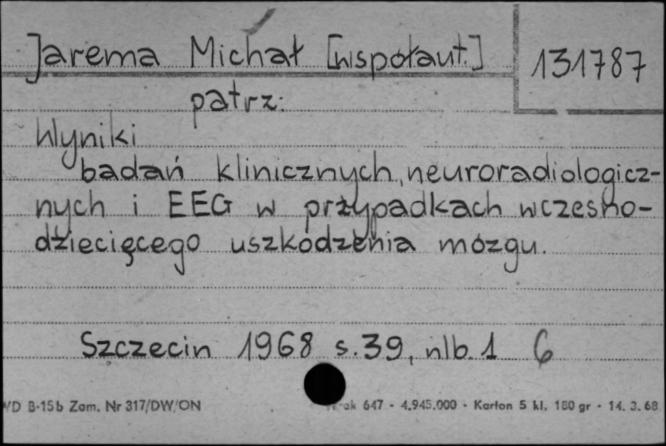 Jarema Michał [współaut.] 131787
patrz:
Wyniki
badań klinicznych, neuroradiologicz-
nych i EEG w przypadkach wczesno-
dziecięcego uszkodzenia mózgu.
Szczecin 1968 s. 39, nlb. 1 6
B-15b Zam. Nr 317/DW/ON 647 - 4.945.000 - Karton 5 kl. 180 gr - 14. 3. 68